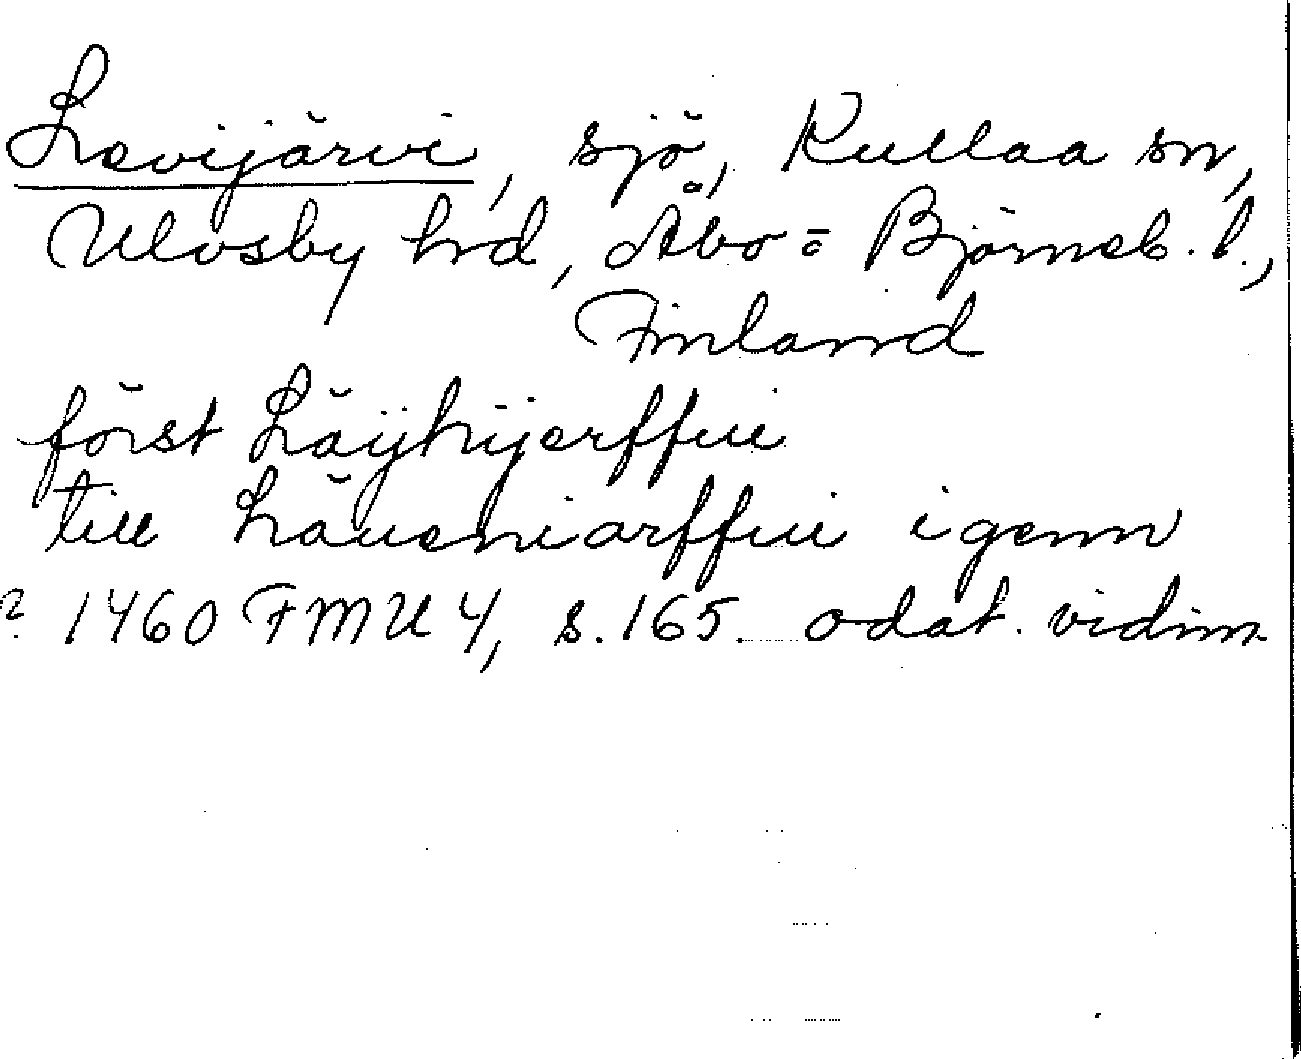 Levijärvi, sjö, Kullaa sn,
Ulvsby hd, Åbo = Björneb. l.,
Finland
först Läÿhÿerffui
till Läueniarffui igenn
? 1460 FMU 4, s. 165. odat. vidim.